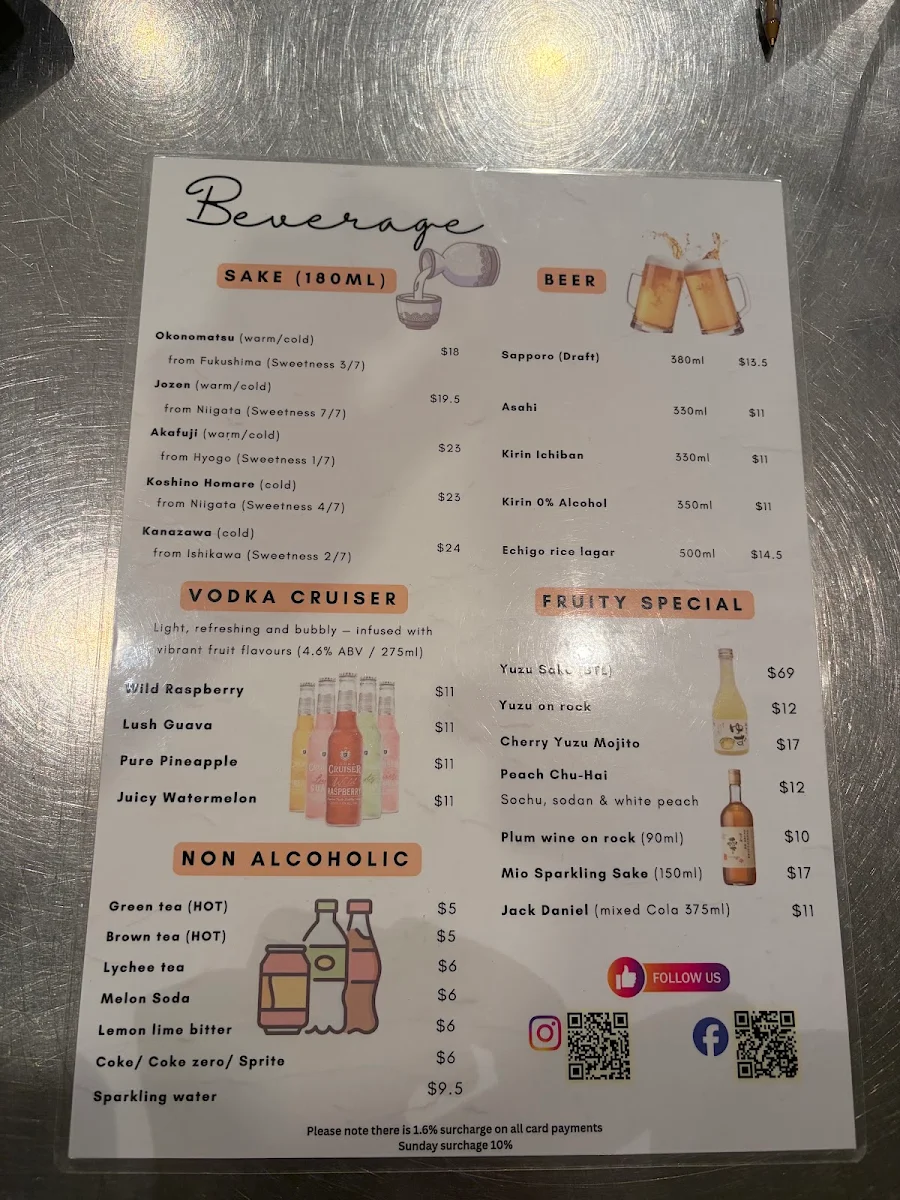 Beverage
SAKE (180ML)
Okonomatsu (warm/cold)
from Fukushima (Sweetness 3/7) $18
Jozen (warm/cold)
from Niigata (Sweetness 7/7) $19.5
Akafuji (warm/cold)
from Hyogo (Sweetness 1/7) $23
Koshino Homare (cold)
from Niigata (Sweetness 4/7) $23
Kanazawa (cold)
from Ishikawa (Sweetness 2/7) $24
VODKA CRUISER
Light, refreshing and bubbly – infused with
vibrant fruit flavours (4.6% ABV / 275ml)
Wild Raspberry $11
Lush Guava $11
Pure Pineapple $11
Juicy Watermelon $11
CRUISER
RASPBERRY
NON ALCOHOLIC
Green tea (HOT) $5
Brown tea (HOT) $5
Lychee tea $6
Melon Soda $6
Lemon lime bitter $6
Coke/ Coke zero/ Sprite $6
Sparkling water $9.5
BEER
Sapporo (Draft) 380ml $13.5
Asahi 330ml $11
Kirin Ichiban 330ml $11
Kirin 0% Alcohol 350ml $11
Echigo rice lagar 500ml $14.5
FRUITY SPECIAL
Yuzu Sake (BTL) $69
Yuzu on rock $12
Cherry Yuzu Mojito $17
Peach Chu-Hai
Sochu, sodan & white peach $12
Plum wine on rock (90ml) $10
Mio Sparkling Sake (150ml) $17
Jack Daniel (mixed Cola 375ml) $11
FOLLOW US
Please note there is 1.6% surcharge on all card payments
Sunday surchage 10%